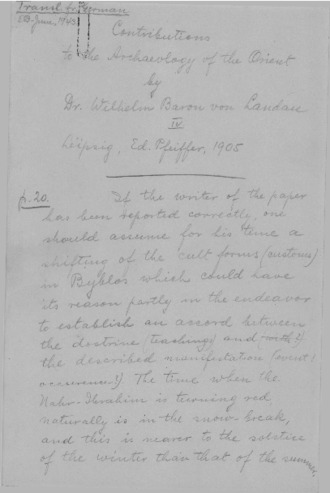 Transl. fr. German
EB. June, 1943
Contributions
to the Archaeology of the Orient
by
Dr. Wilhelm Baron von Landau
IV
Leipzig, Ed. Pfeiffer, 1905
p. 20. If the writer of the paper
has been reported correctly, one
should assume for his time a
shifting of the cult forms (customs)
in Byblos which could have
its reason partly in the endeavor
to establish an accord between
the doctrine (teaching) and (with?)
the described manifestation (event?
occurrence?) The time when the
Nahr-Ibrahim is turning red
naturally is in the snow-break,
and this is nearer to the solstice
of the winter than that of the summer,